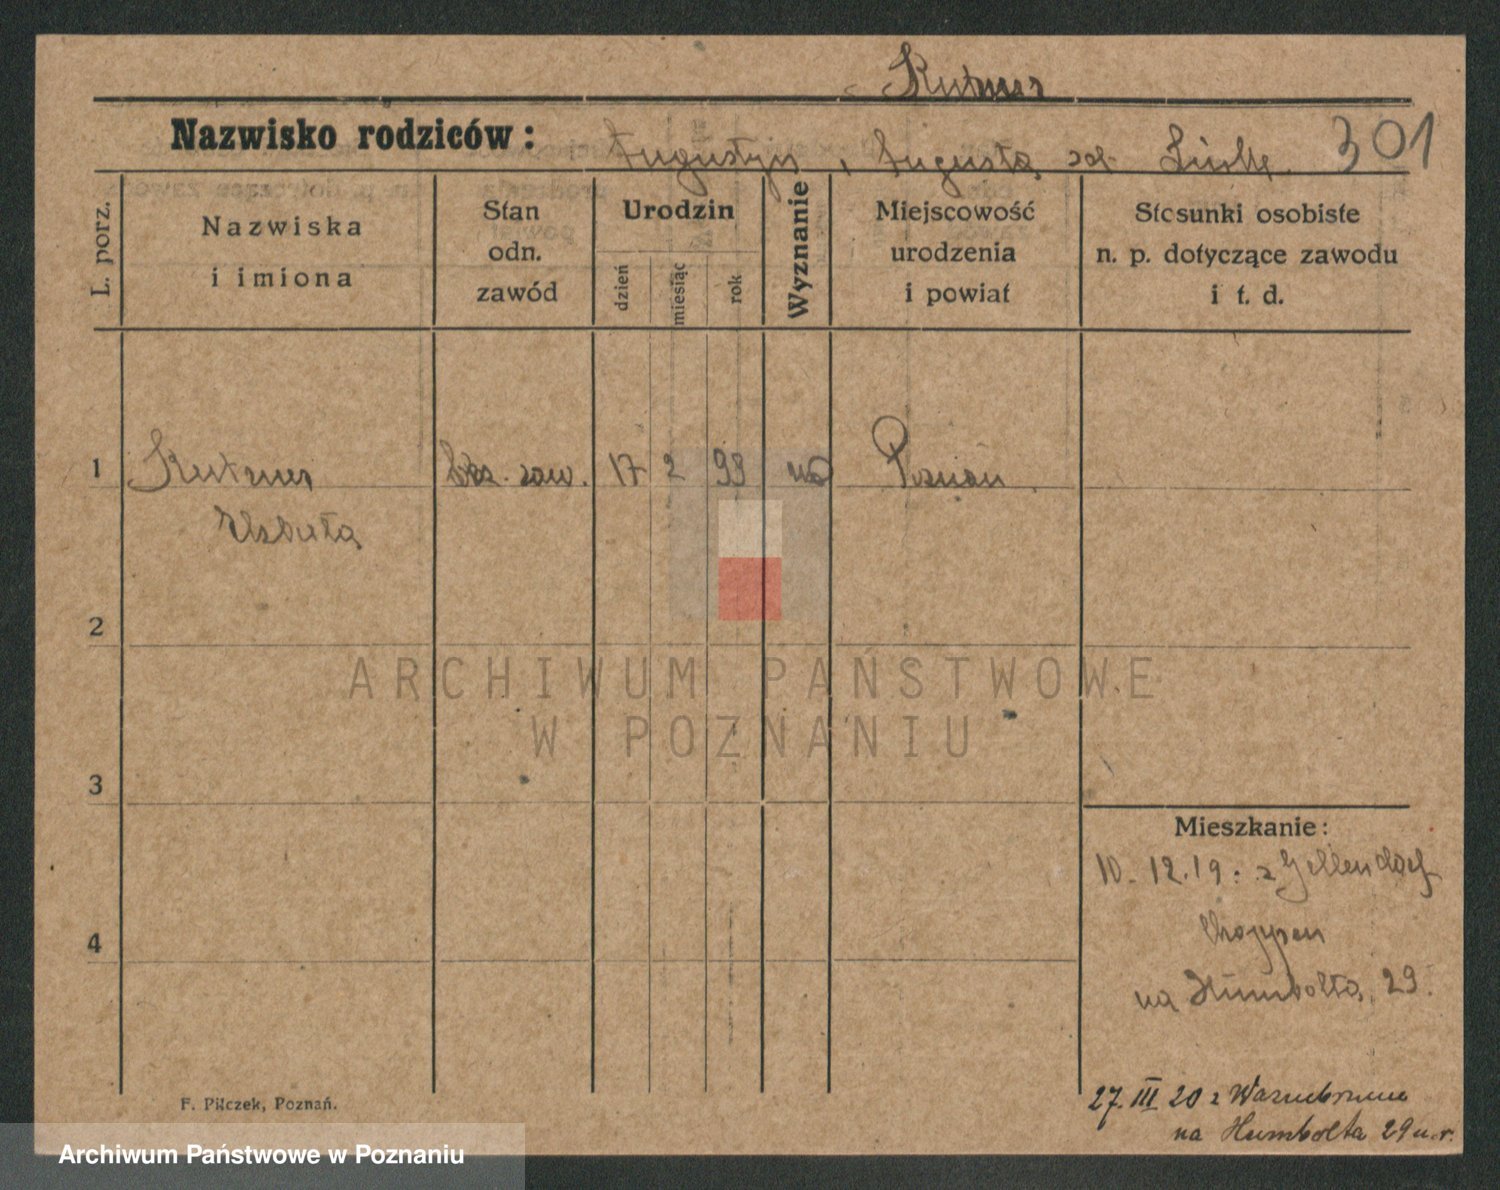 Kutzner
Nazwisko rodziców: Augustyn, Augusta 301
L. porz.
Nazwiska
i imiona
Stan
odn.
zawód
Urodzin
dzień
miesiąc
rok
Wyznanie
Miejscowość
urodzenia
i powiat
Stosunki osobiste
n. p. dotyczące zawodu
i t. d.
1 Kutzner bez. zaw. 17 2 99 Poznań
Elzbieta
2
ARCHIWUM PAŃSTWOWE
W POZNANIU
3
Mieszkanie:
10. 12. 19. z Gellendorf
4
na Humbolta, 29.
27. III 20 z Warmbrunn
na Humbolta 29 u. r.
F. Pilczek, Poznań.
Archiwum Państwowe w Poznaniu